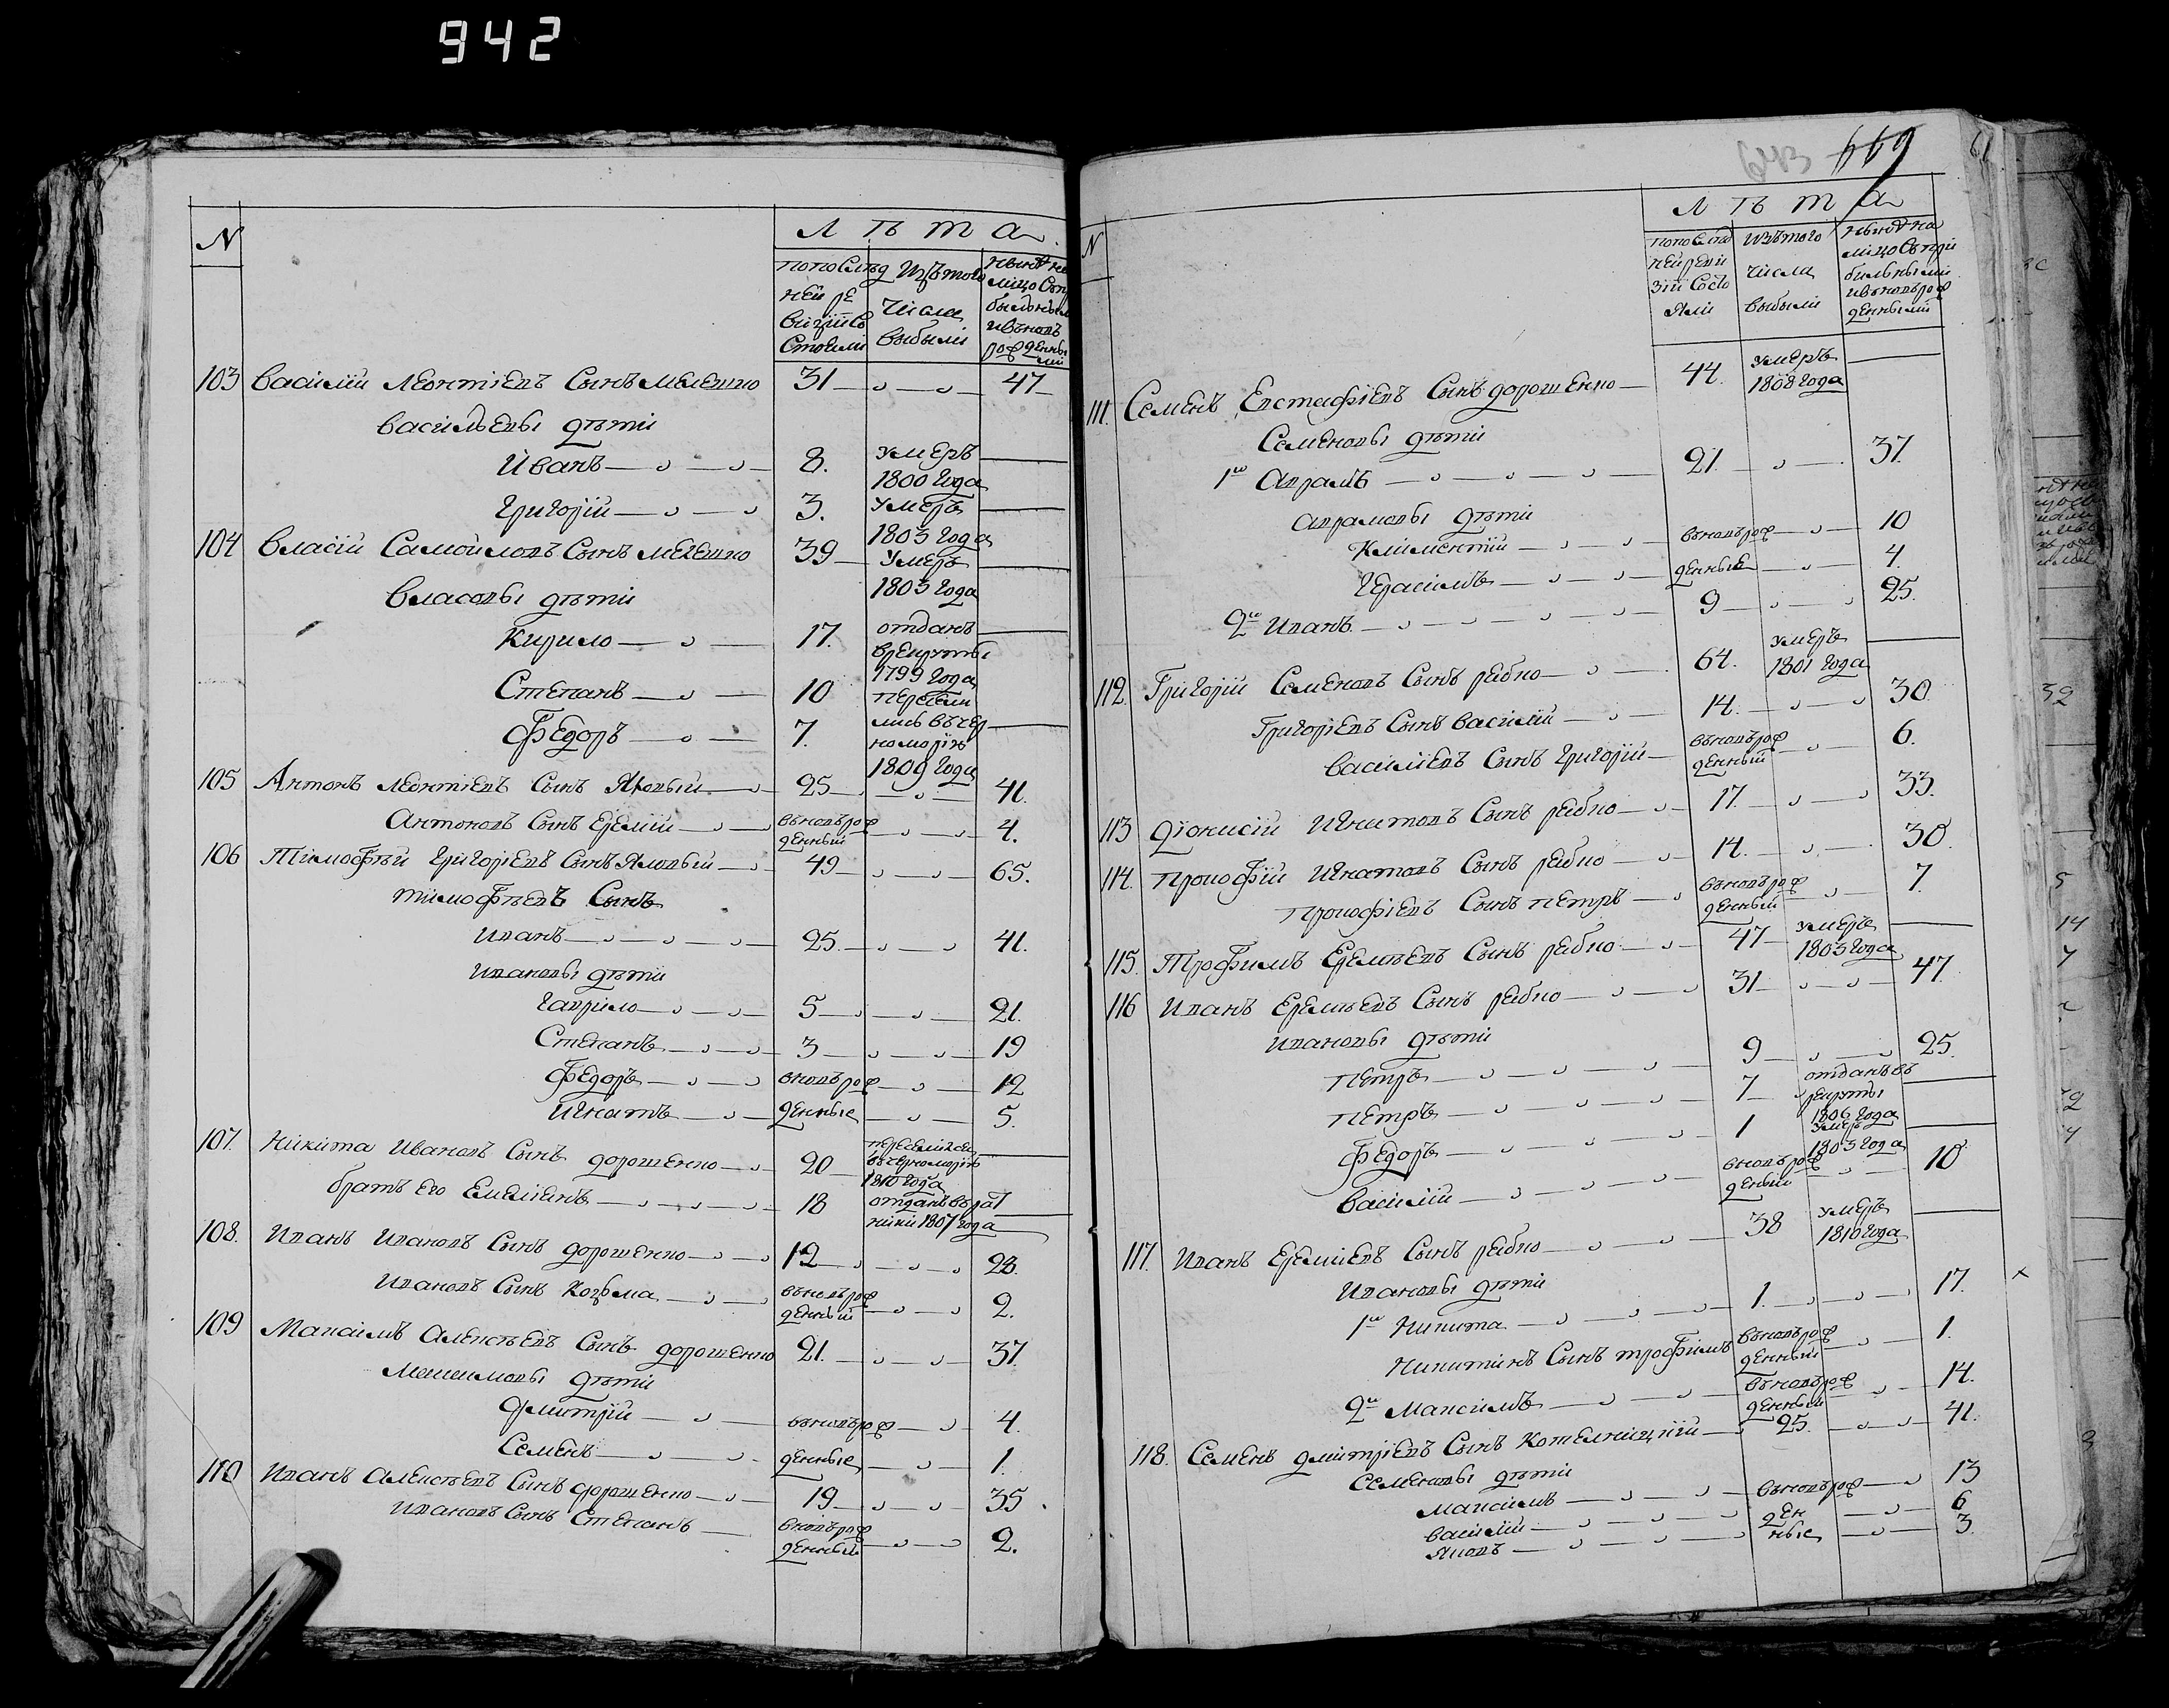 942
N
Л Ѣ Т А
по послѣд ней ре визіи со стояли
Изъ того числа выбыли
103 Василій Леонтіевъ Сынъ Мелешко 31 47
Васильевы дѣти
Иванъ 8. умеръ 1800 года
Григорій 3. умеръ 1803 года
104 Власій Самойловъ Сынъ Мелешко 39 умеръ 1803 года
Власовы дѣти
Кирило 17. отданъ в рекруты 1799 года
Степанъ 10 пересели
Федоръ 7. лись в чер номорію 1809 года
105 Антонъ Леонтіевъ Сынъ 25 41.
Антоновъ Сынъ Еремій вновь рож денный 4.
106 Тимофѣй Григоріевъ Сынъ 49 65.
Тимофѣевъ Сынъ
Иванъ 25. 41.
Ивановы дѣти
Гаврило 5 21.
Степанъ 3 19
Федоръ вновь рож 12
Игнатъ денные 5.
107. Никита Ивановъ Сынъ Дорошенко 20 переселился въ черноморію 1810 года
братъ его Емеліянъ 18 отданъ в рат ники 1807 года
108. Иванъ Ивановъ Сынъ Дорошенко 12 28.
Ивановъ Сынъ Козьма вновь рож денный 2.
109 Максимъ Алексѣевъ Сынъ Дорошенко 21. 37.
Максимовы дѣти
Дмитрій вновь рож 4.
Семенъ денные 1.
110 Иванъ Алексѣевъ Сынъ Дорошенко 19 35
Ивановъ Сынъ Степанъ вновь рож денный 2.
643 669
N
Л Ѣ Т А
по послѣд ней реви зіи состо яли
Изъ того числа выбыли
нынѣ на лицо съ при былыми и вновь рож денными
111. Семенъ Евстафіевъ Сынъ Дорошенко 44. умеръ 1808 года
Семеновы дѣти
1й Аврамъ 21. 37.
Аврамовы дѣти
Климентій вновь рож 10
Герасимъ денные 4.
2й Иванъ 9 25.
112. Григорій Семеновъ Сынъ Рябко 64. умеръ 1801 года
Григоріевъ Сынъ Василій 14. 30.
Василіевъ Сынъ Григорій вновь рож денный 6.
113 Діонисій Игнатовъ Сынъ Рябко 17. 33.
114. Прокофій Игнатовъ Сынъ Рябко 14. 30.
Прокофіевъ Сынъ Петръ вновь рож денный 7.
115. Трофимъ Еремѣевъ Сынъ Рябко 47 умеръ 1803 года
116 Иванъ Еремѣевъ Сынъ Рябко 31 47.
Ивановы дѣти
Петръ 9 25.
Петръ 7 отданъ въ рекруты 1806 года
Федоръ 1 умеръ 1803 года
Василій вновь рож денный 10
117. Иванъ Еремиевъ Сынъ Рябко 38 умеръ 1810 года
Ивановы дѣти
1й Никита 1. 17.
Никитинъ Сынъ Трофимъ вновь рож денный 1.
2й Максимъ вновь рож денный 14.
118. Семенъ Дмитріевъ Сынъ Котелницкій 25. 41.
Семеновы дѣти
Максимъ вновь рож 13
Василій ден 6
Яковъ ные 3.